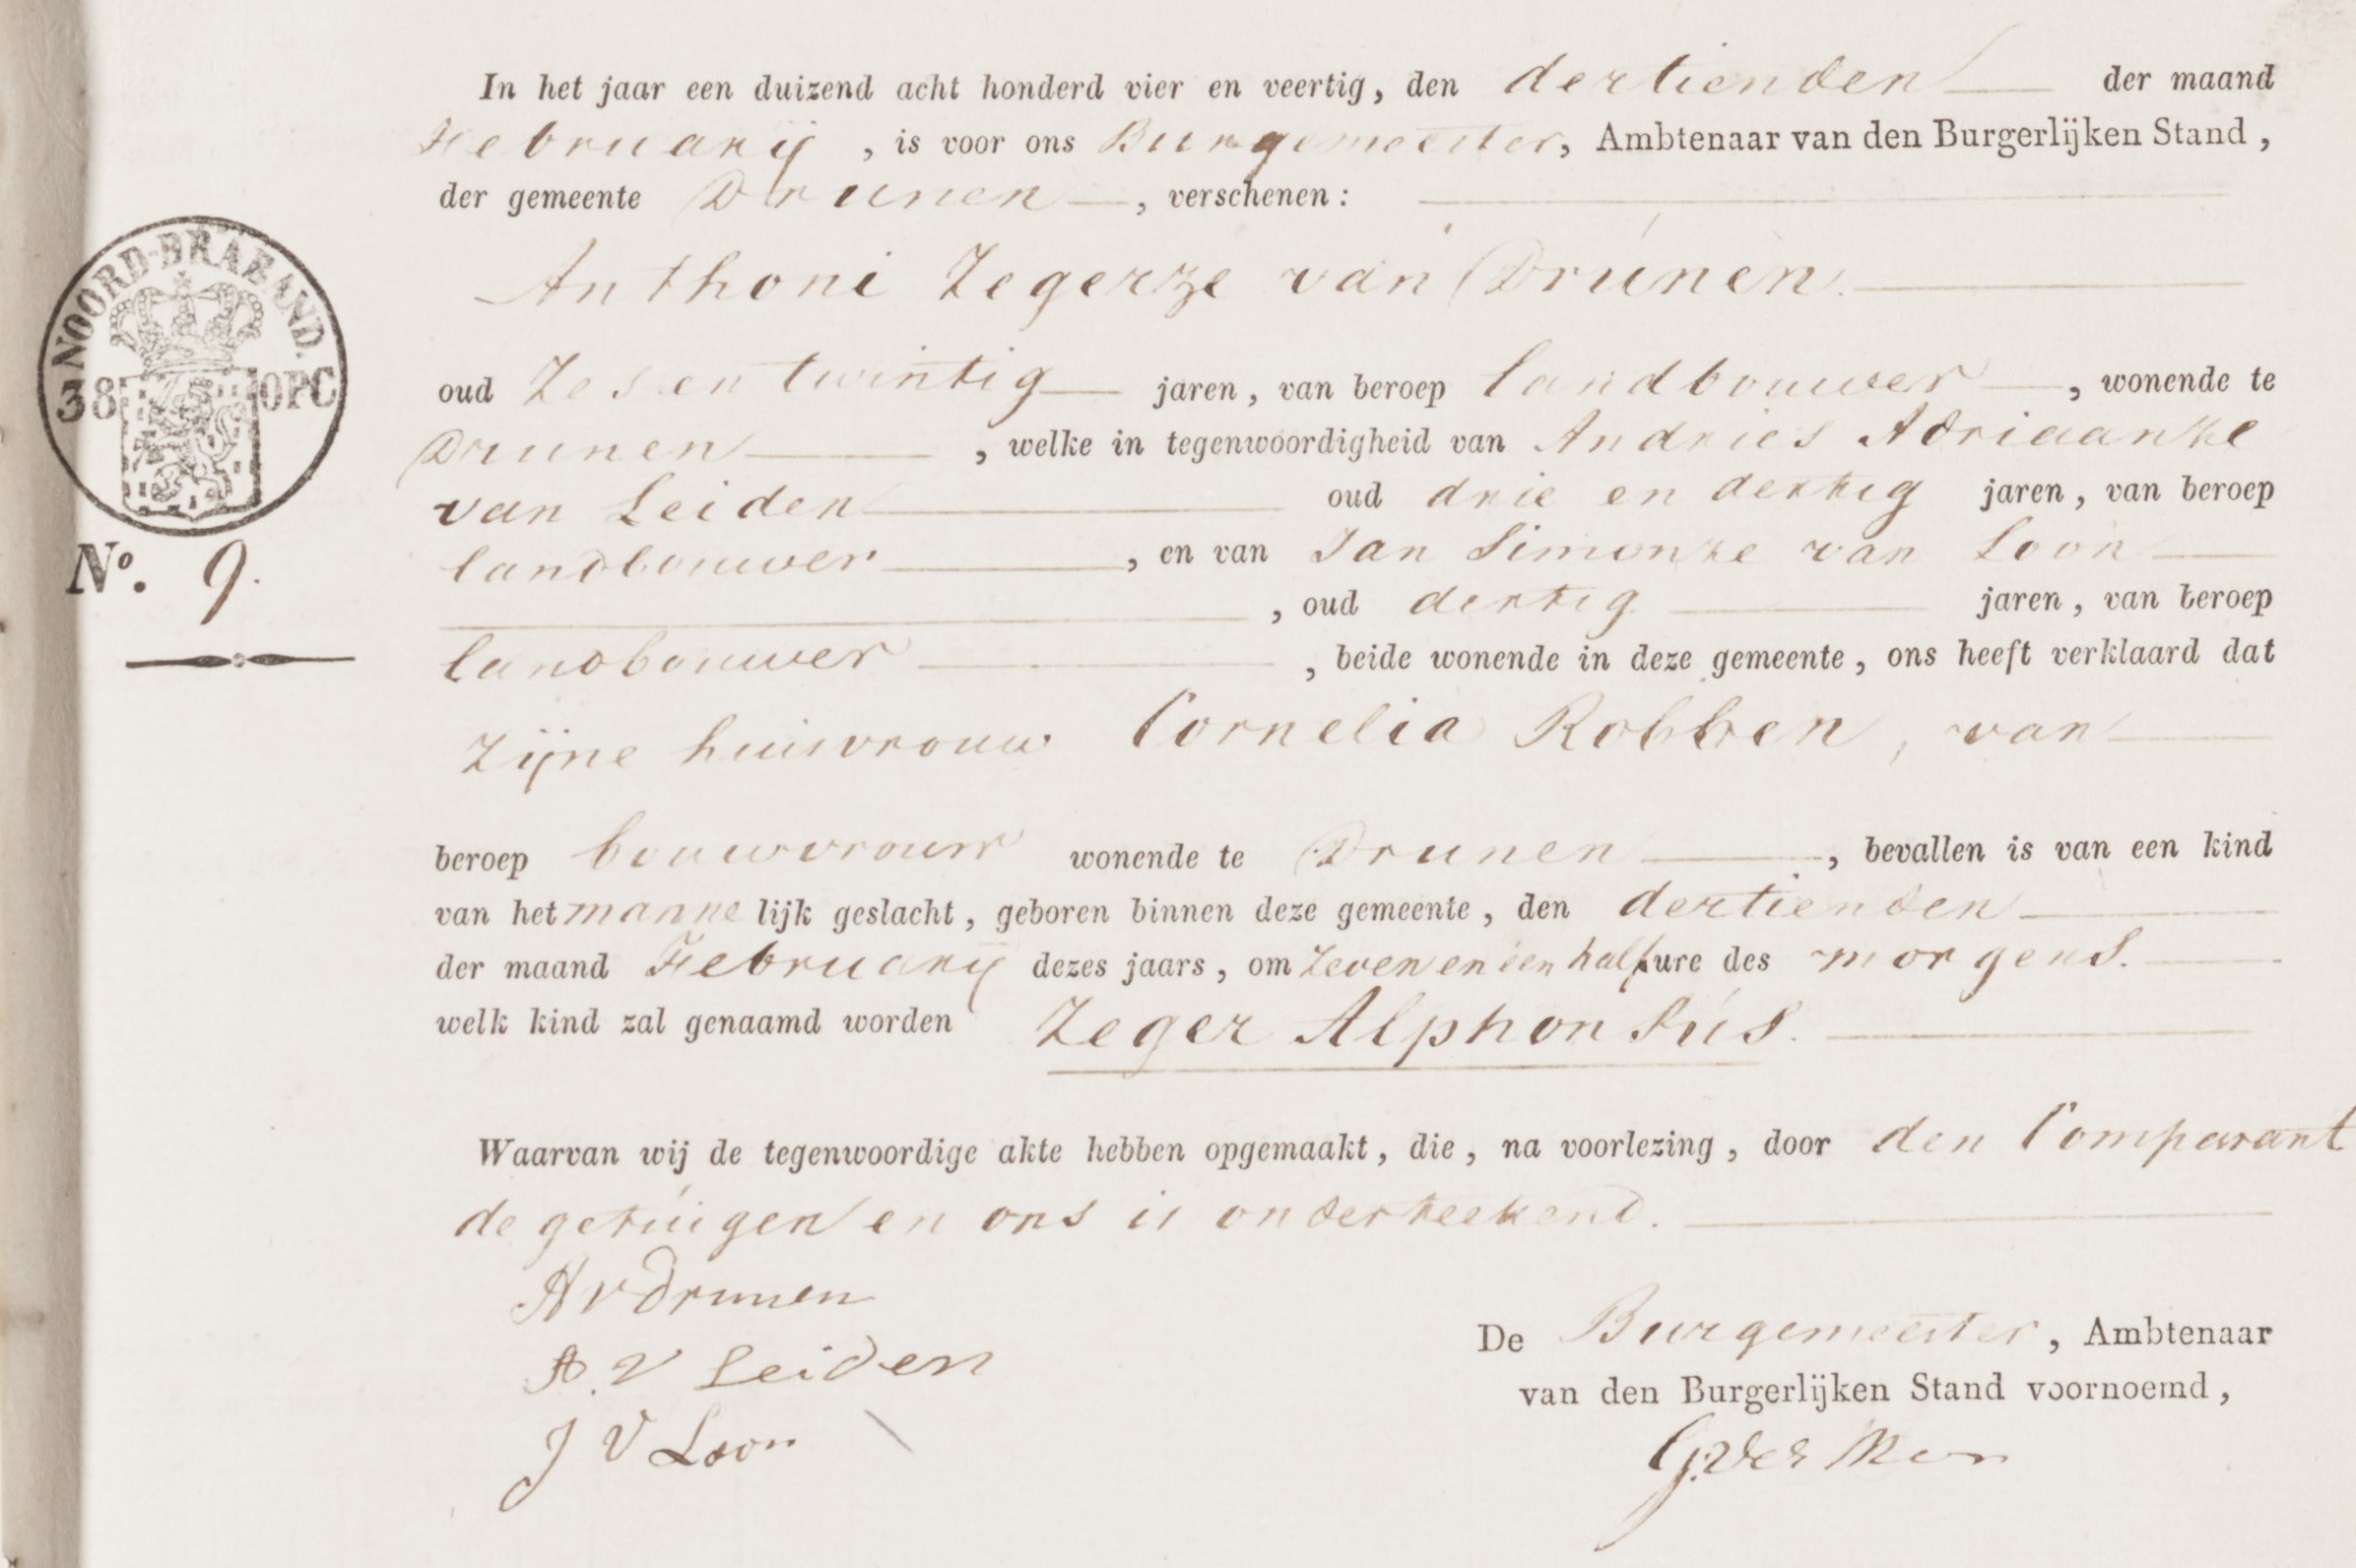 In het jaar een duizend acht honderd vier en veertig, den dertienden der maand
Februarij, is voor ons Burgemeester, Ambtenaar van den Burgerlijken Stand,
der gemeente Drunen, verschenen:
Anthoni Zegerze van Drunen.
oud Zes en twintig jaren, van beroep landbouwer, wonende te
Drunen, welke in tegenwoordigheid van Andries Adriaanze
van Leiden oud drie en dertig jaren, van beroep
landbouwer, en van Jan Simonze van Loon
, oud dertig jaren, van beroep
landbouwer, beide wonende in deze gemeente, ons heeft verklaard dat
Zijne huisvrouw Cornelia Robben, van
beroep bouwvrouw wonende te Drunen, bevallen is van een kind
van het mannelijk geslacht, geboren binnen deze gemeente, den dertienden
der maand Februarij dezes jaars, om Zeven en een half ure des morgens.
welk kind zal genaamd worden Zeger Alphonsús.
Waarvan wij de tegenwoordige akte hebben opgemaakt, die, na voorlezing, door den Comparant
de getuigen en ons is onderteekend.
AvDrunen
A. v Leiden
J V Loon
De Burgemeester, Ambtenaar
van den Burgerlijken Stand voornoemd,
NOORD-BRABAND.
38 OPC
No. 9.